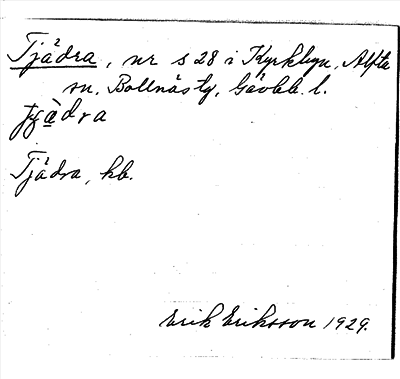 Tjädra, nr s 28 i Kyrkbyn, Alfta
sn, Bollnäs tg, Gävleb. l.
Tjädra, kb.
Erik Eriksson 1929.